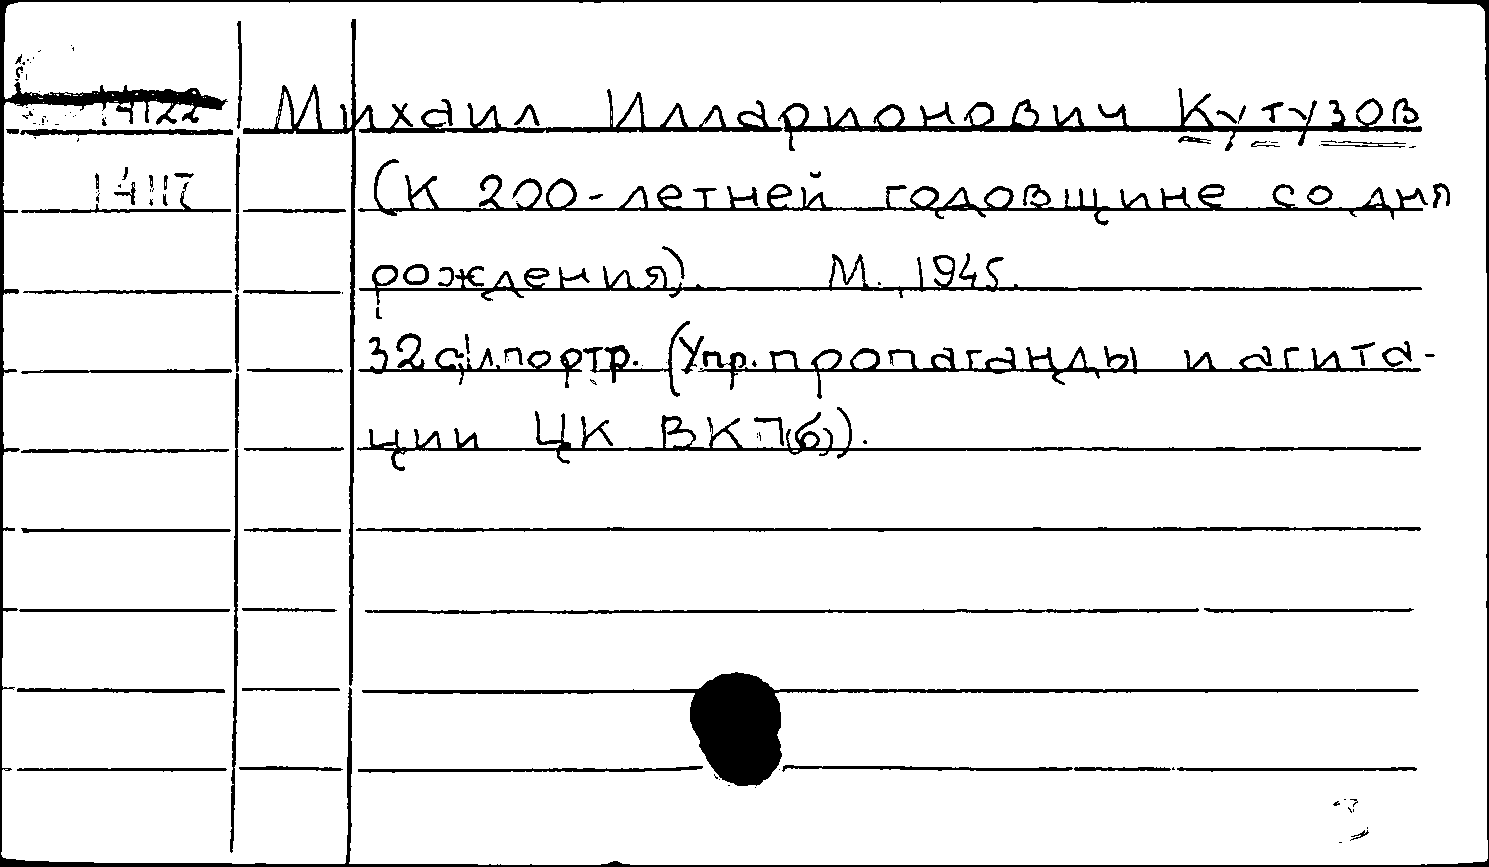 14122 Михаил Илларионович Кутузов
14117 (К 200-летней годовщине со дня
рождения). М., 1945.
32с;1л.портр. (Упр. пропаганды и агита-
ции ЦК ВКП(б)).